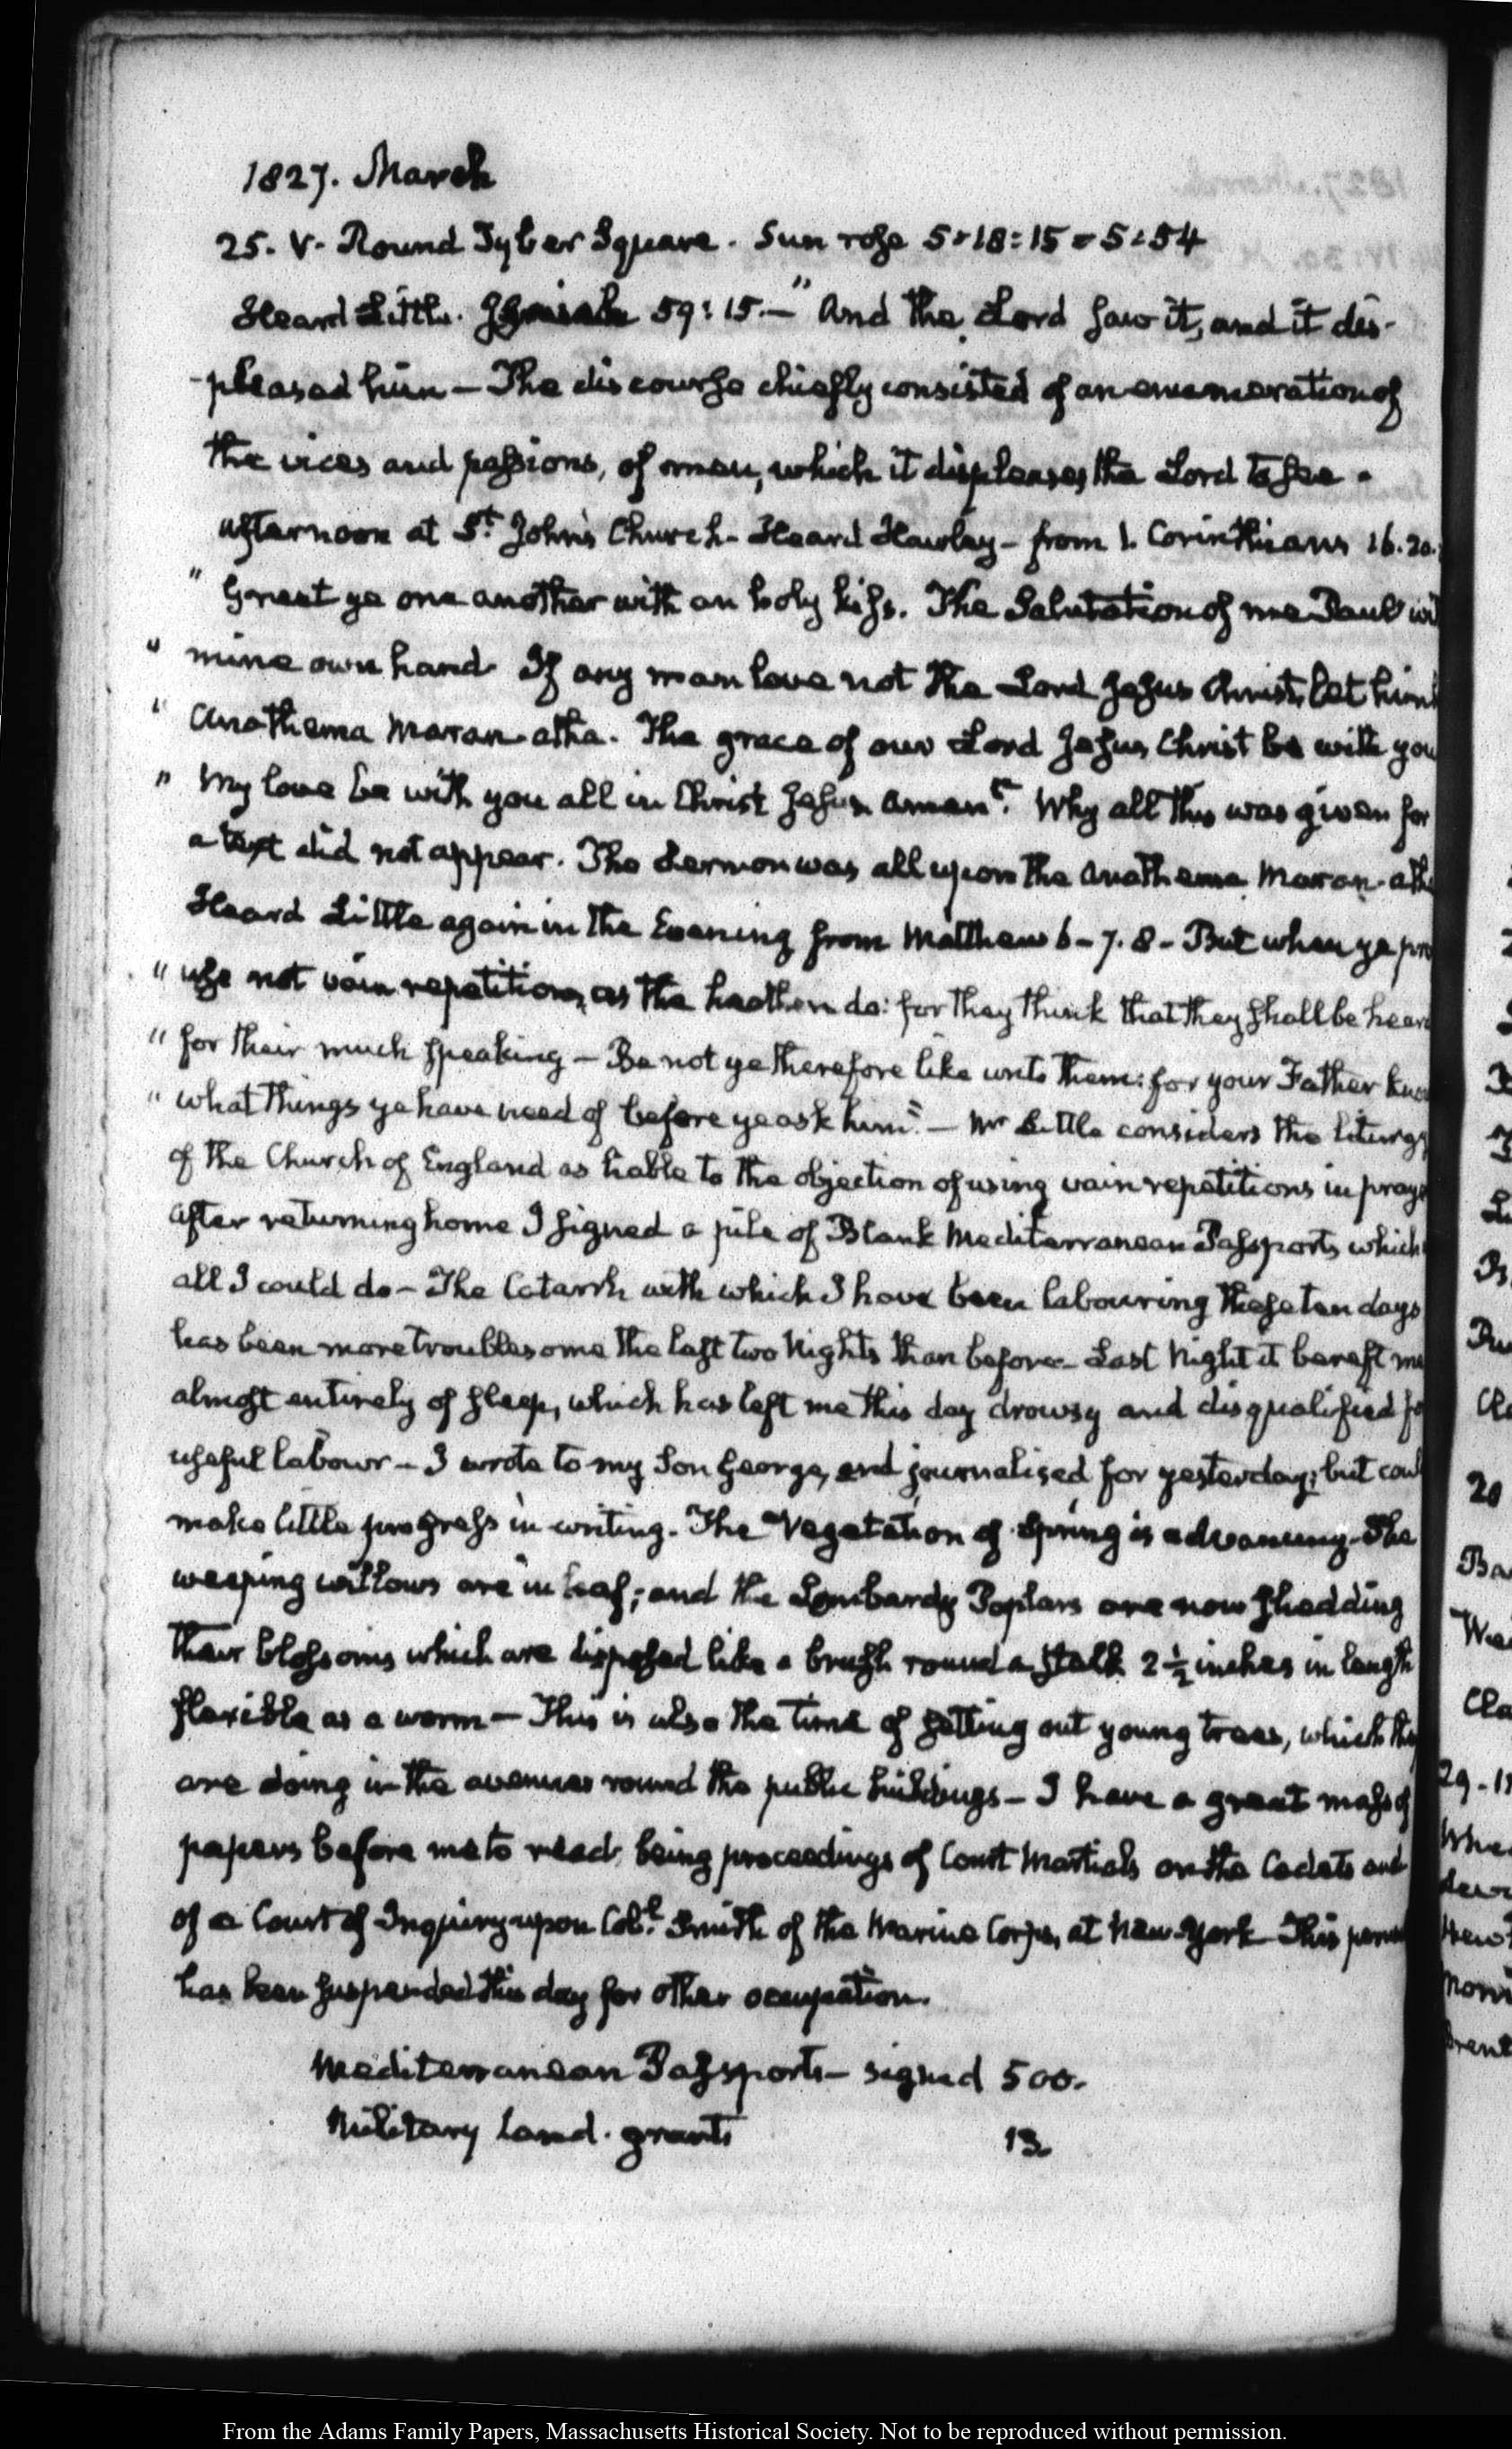 1827. March
25. V. Round Tyber Square. Sun rose 5:18:15 = 5:54
Heard Little. Isaiah 59:15.—" And the Lord saw it, and it dis-
-pleased him — The discourse chiefly consisted of an enumeration of
the vices and passions, of men, which it displeases the Lord to see.
afternoon at St. John's Church - Heard Hawley - from 1. Corinthians 16.20.
" Greet ye one another with an holy kiss. The Salutation of me Paul wi
" mine own hand If any man love not the Lord Jesus Christ, let him
" Anathema Maran-atha. The grace of our Lord Jesus Christ be with you
" My love be with you all in Christ Jesus Amen". Why all this was given for
a text did not appear. The Sermon was all upon the Anathema Maran-ath
Heard Little again in the Evening from Matthew 6-7.8 - But when ye pr
" use not vain repetitions, as the heathen do: for they think that they shall be hear
" for their much speaking - Be not ye therefore like unto them: for your Father kno
" what things ye have need of before ye ask him." - Mr Little considers the liturgy
of the Church of England as liable to the objection of using vain repetitions in pray
After returning home I signed a pile of Blank Mediterranean Passports which
all I could do - The Catarrh with which I have been labouring these ten days
has been more troublesome the last two Nights than before - Last Night it bereft me
almost entirely of sleep, which has left me this day drowsy and disqualified fo
useful labour - I wrote to my Son George, and journalised for yesterday; but coul
make little progress in writing. The Vegetation of Spring is advancing - The
weeping willows are in leaf; and the Lombardy Poplars are now shedding
their blossoms which are disposed like a brush round a stalk 2 ½ inches in length
flexible as a worm - This is also the time of setting out young trees, which they
are doing in the avenues round the public buildings - I have a great mass of
papers before me to read, being proceedings of Court Martials on the Cadets and
of a Court of Inquiry upon Coll. Smith of the Marine Corps, at New-York This perus
has been suspended this day for other occupation.
Mediterranean Passports - signed 500.
Military Land. grants 13.
From the Adams Family Papers, Massachusetts Historical Society. Not to be reproduced without permission.